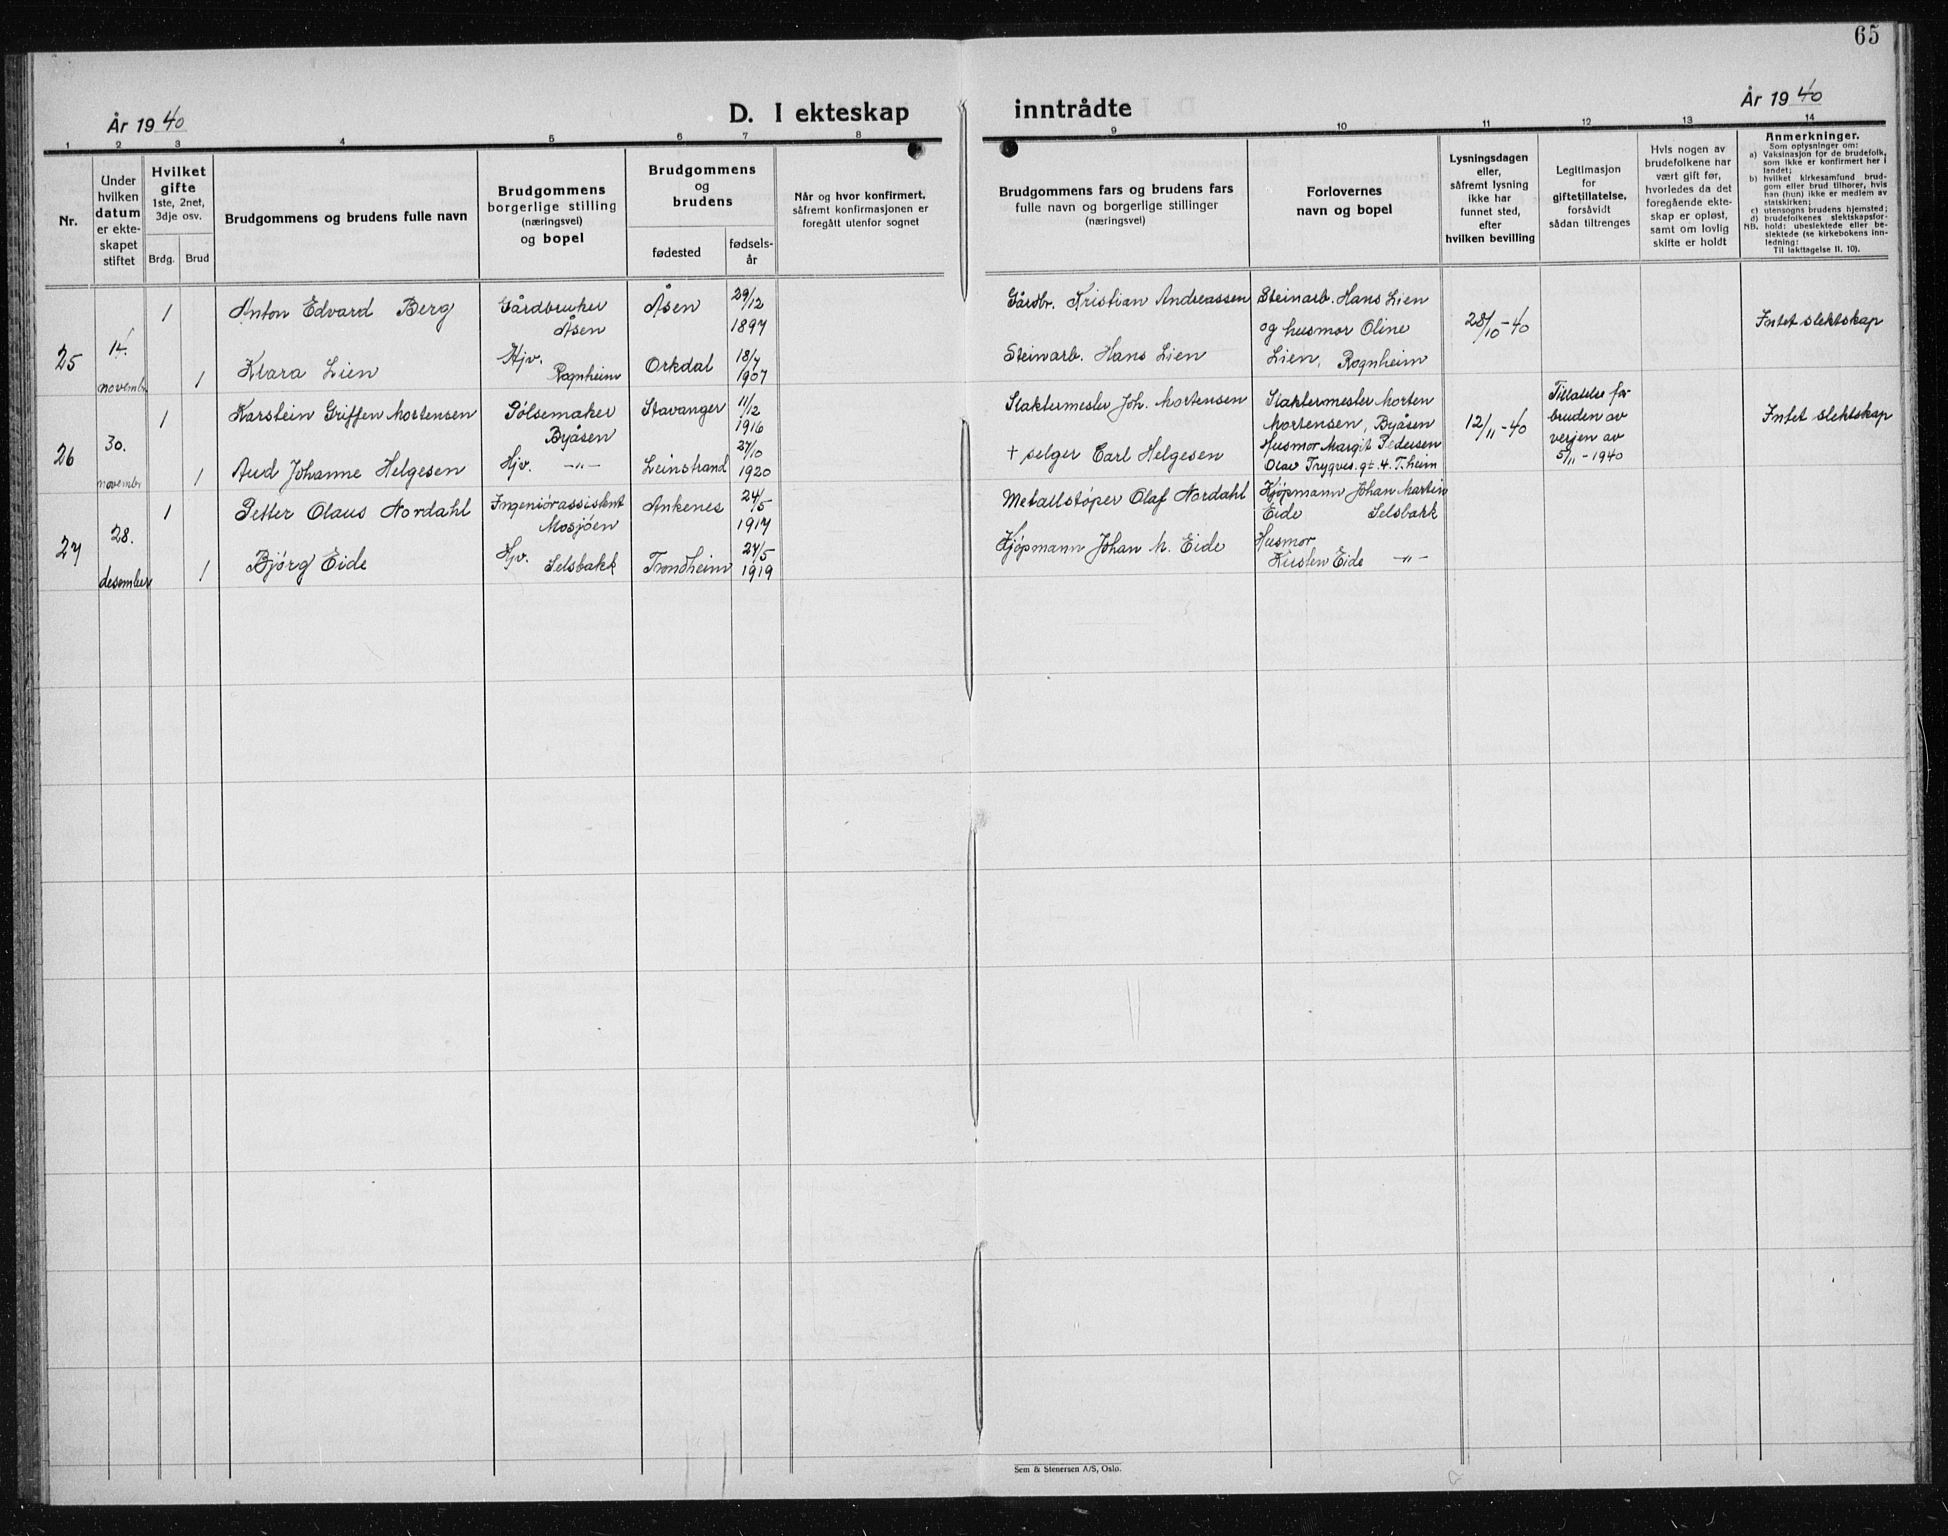 65
År 1940
D. I ekteskap inntrådte
År 1940
1 2 3 4 5 6 7 8 9 10 11 12 13 14
Nr.
Under
hvilken
datum
er ekte-
skapet
stiftet
Hvilket
gifte
1ste, 2net,
3dje osv.
Brdg. Brud
Brudgommens og brudens fulle navn
Brudgommens
borgerlige stilling
(næringsvei)
og bopel
Brudgommens
og
brudens
fødested
fødsels-
år
Når og hvor konfirmert,
såfremt konfirmasjonen er
foregått utenfor sognet
Brudgommens fars og brudens fars
fulle navn og borgerlige stillinger
(næringsvei)
Forlovernes
navn og bopel
Lysningsdagen
eller,
såfremt lysning
ikke har
funnet sted,
efter
hvilken bevilling
Legitimasjon
for
giftetillatelse,
forsåvidt
sådan tiltrenges
Hvis nogen av
brudefolkene har
vært gift før,
hvorledes da det
foregående ekte-
skap er opløst,
samt om lovlig
skifte er holdt
Anmerkninger.
Som oplysninger om:
a) Vaksinasjon for de brudefolk,
som ikke er konfirmert her i
landet;
b) hvilket kirkesamfund brud-
gom eller brud tilhører, hvis
han (hun) ikke er medlem av
statskirken;
c) utensogns brudens hjemsted;
d) brudefolkenes slektskapsfor-
hold: ubeslektede eller be-
slektede (se kirkebokens inn-
ledning:
NB.
Til iakttagelse II. 10).
25
14.
november
1
Anton Edvard Berg
Gårdbruker
Åsen
Åsen
29/12
1897
Gårdbr. Kristian Andreassen
Steinarb. Hans Lien
og husmor Oline
Lien, Rognheim
28/10-40
Intet slektskap
1
Klara Lien
Hjv.
Rognheim
Orkdal
18/7
1907
Steinarb. Hans Lien
26
30.
november
1
Karstein Griffen Mortensen
Pølsemaker
Byåsen
Stavanger
11/12
1916
Slaktermester Joh. Mortensen
Slaktermester Morten
Mortensen, Byåsen
Husmor Margit Pedersen
Olav Trygves. gt. 4. T.heim
12/11-40
Tillatelse for
bruden av
verjen av
5/11-1940
Intet slektskap
1
Aud Johanne Helgesen
Hjv. -"-
Leinstrand
27/10
1920
+ selger Carl Helgesen
27
28.
desember
1
Petter Olaus Nordahl
Ingeniørassistent
Mosjøen
Ankenes
24/5
1917
Metallstøper Olaf Nordahl
Kjøpmann Johan Martin
Eide Selsbakk
1
Bjørg Eide
Hjv.
Selsbakk
Trondheim
24/5
1919
Kjøpmann Johan M. Eide
Husmor
Kirsten Eide -"-
Sem & Stenersen A/S, Oslo.